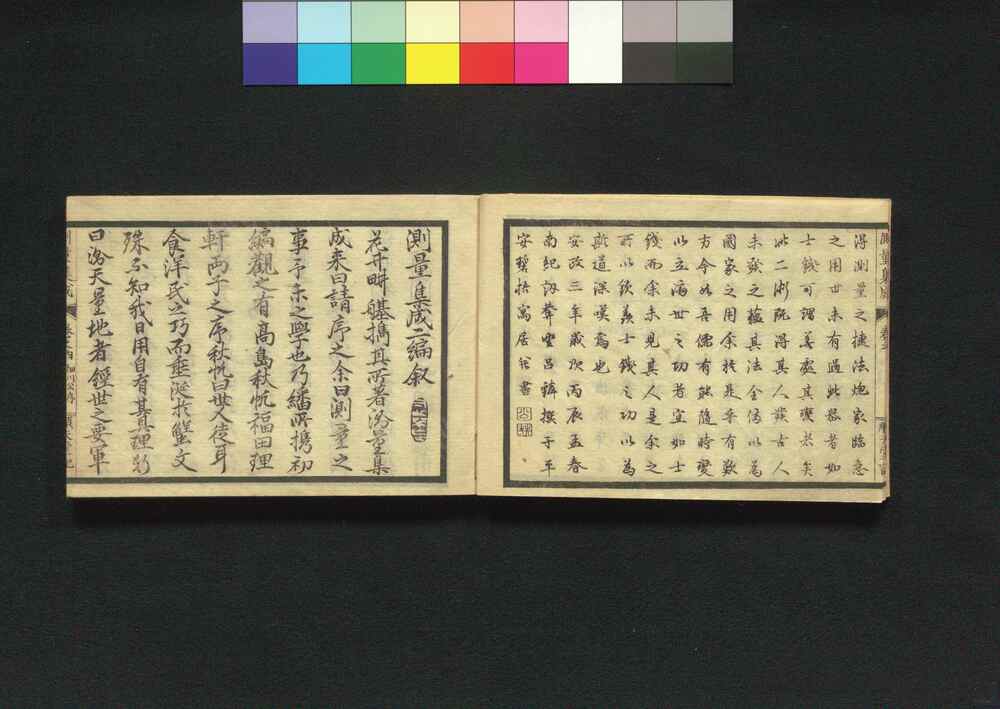 得測量之捷法炮家臨急
之用世未有過此器者如
士餞可謂善處其變者矣
此二術既得其人發古人
未發之蘊其法全備以為
國家之用余於是乎有歎
方今如吾儒有能隨時變
以立濟世之功者宜如士
餞而余未見其人是余之
所以欽羨士餞之功以為
斯道深嘆焉也
安政三年歲次丙辰孟春
南紀 撰于平
安 寓居 書
測量集成二編叙
花井畊 携其所著測量集
成来曰請序之余曰測量之
事予未之學也乃繙所携初
編觀之有高島秋帆福田理
軒両子之序秋帆曰世人徒耳
食洋氏之巧而垂涎於蟹文
殊不知我日用自有其理
曰測天量地者經世之要軍